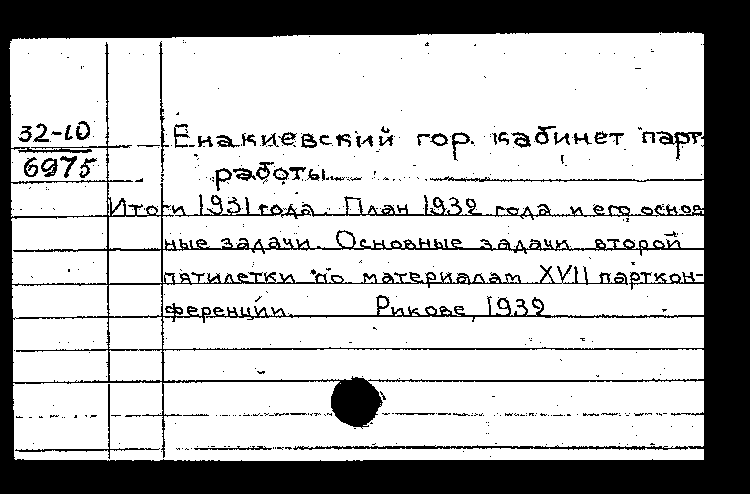 32-10
6975
Енакиевский гор. кабинет парт-
работы
Итоги 1931 года. План 1932 года и его основ
ные задачи. Основные задачи второй
пятилетки по материалам XVII парткон-
ференции. Рикове, 1932